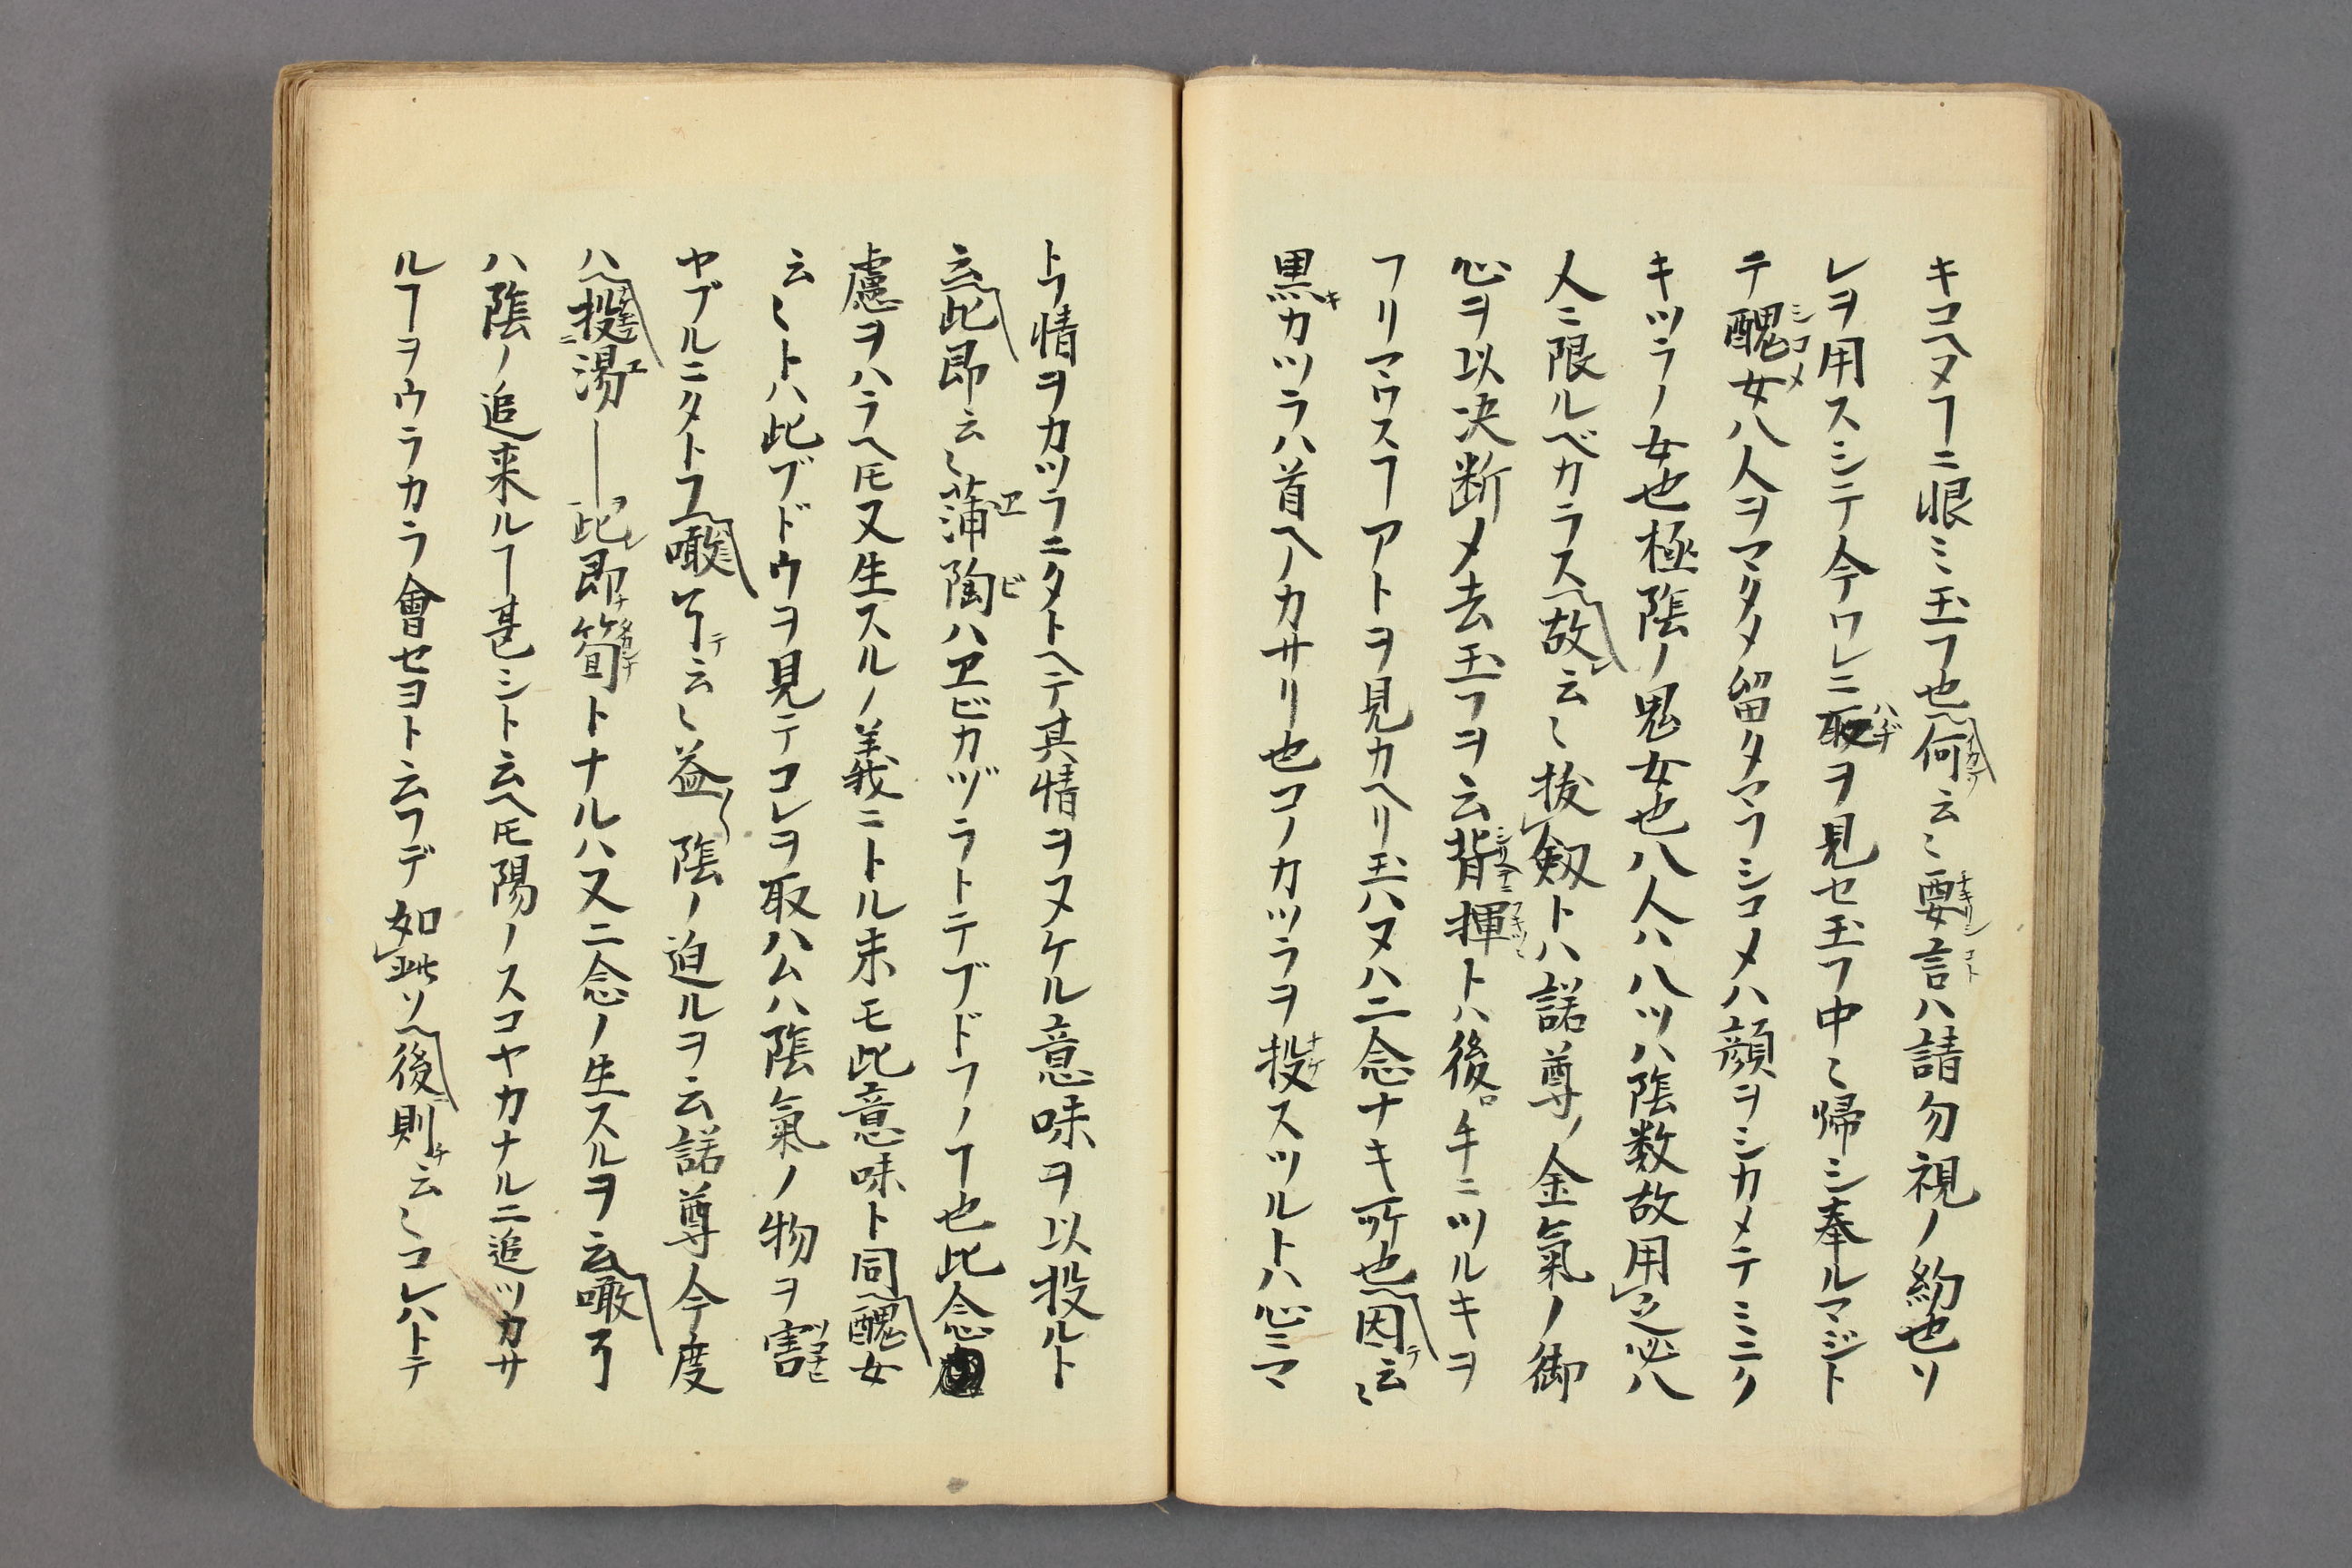 キコヘヌヿニ恨ミ玉フ也何云〻要言ハ請勿視ノ約也ソ
レヲ用スシテ今ワレニ耻ヲ見セ玉フ中〻帰シ奉ルマジト
テ醜女八人ヲマタメ留タマフシコメハ顔ヲシカメテミニク
キツラノ女也極陰ノ鬼女也八人ハ八ツハ陰数故用之必八
人ニ限ルベカラス故云〻抜劔トハ諾尊ノ金氣ノ御
心ヲ以决断メ去玉フヲ云背揮トハ後ロ手ニツルキヲ
フリマウスヿアトヲ見カヘリ玉ハヌハ二念ナキ所也因云〻
黒カツラハ首ヘノカサリ也コノカツラヲ投スツルトハ心ニマ
トフ情ヲカツラニタトヘテ其情ヲヌケル意味ヲ以投ルト
云此即云〻蒲陶ハヱビカヅラトテブドフノヿ也此念
慮ヲハラヘ𪜈又生スルノ義ニトル末モ此意味ト同醜女
云〻トハ此ブドウヲ見テコレヲ取ハムハ陰氣ノ物ヲ害
ヤブルニタトフ噉了云〻益〻陰ノ迫ルヲ云諾尊今度
ハ投湯―此即筍トナルハ又二念ノ生スルヲ云噉了
ハ陰ノ追来ルヿ甚シト云ヘ𪜈陽ノスコヤカナルニ追ツカサ
ルヿヲウラカラ會セヨト云フデ如此ソ後則云〻コレハトテ